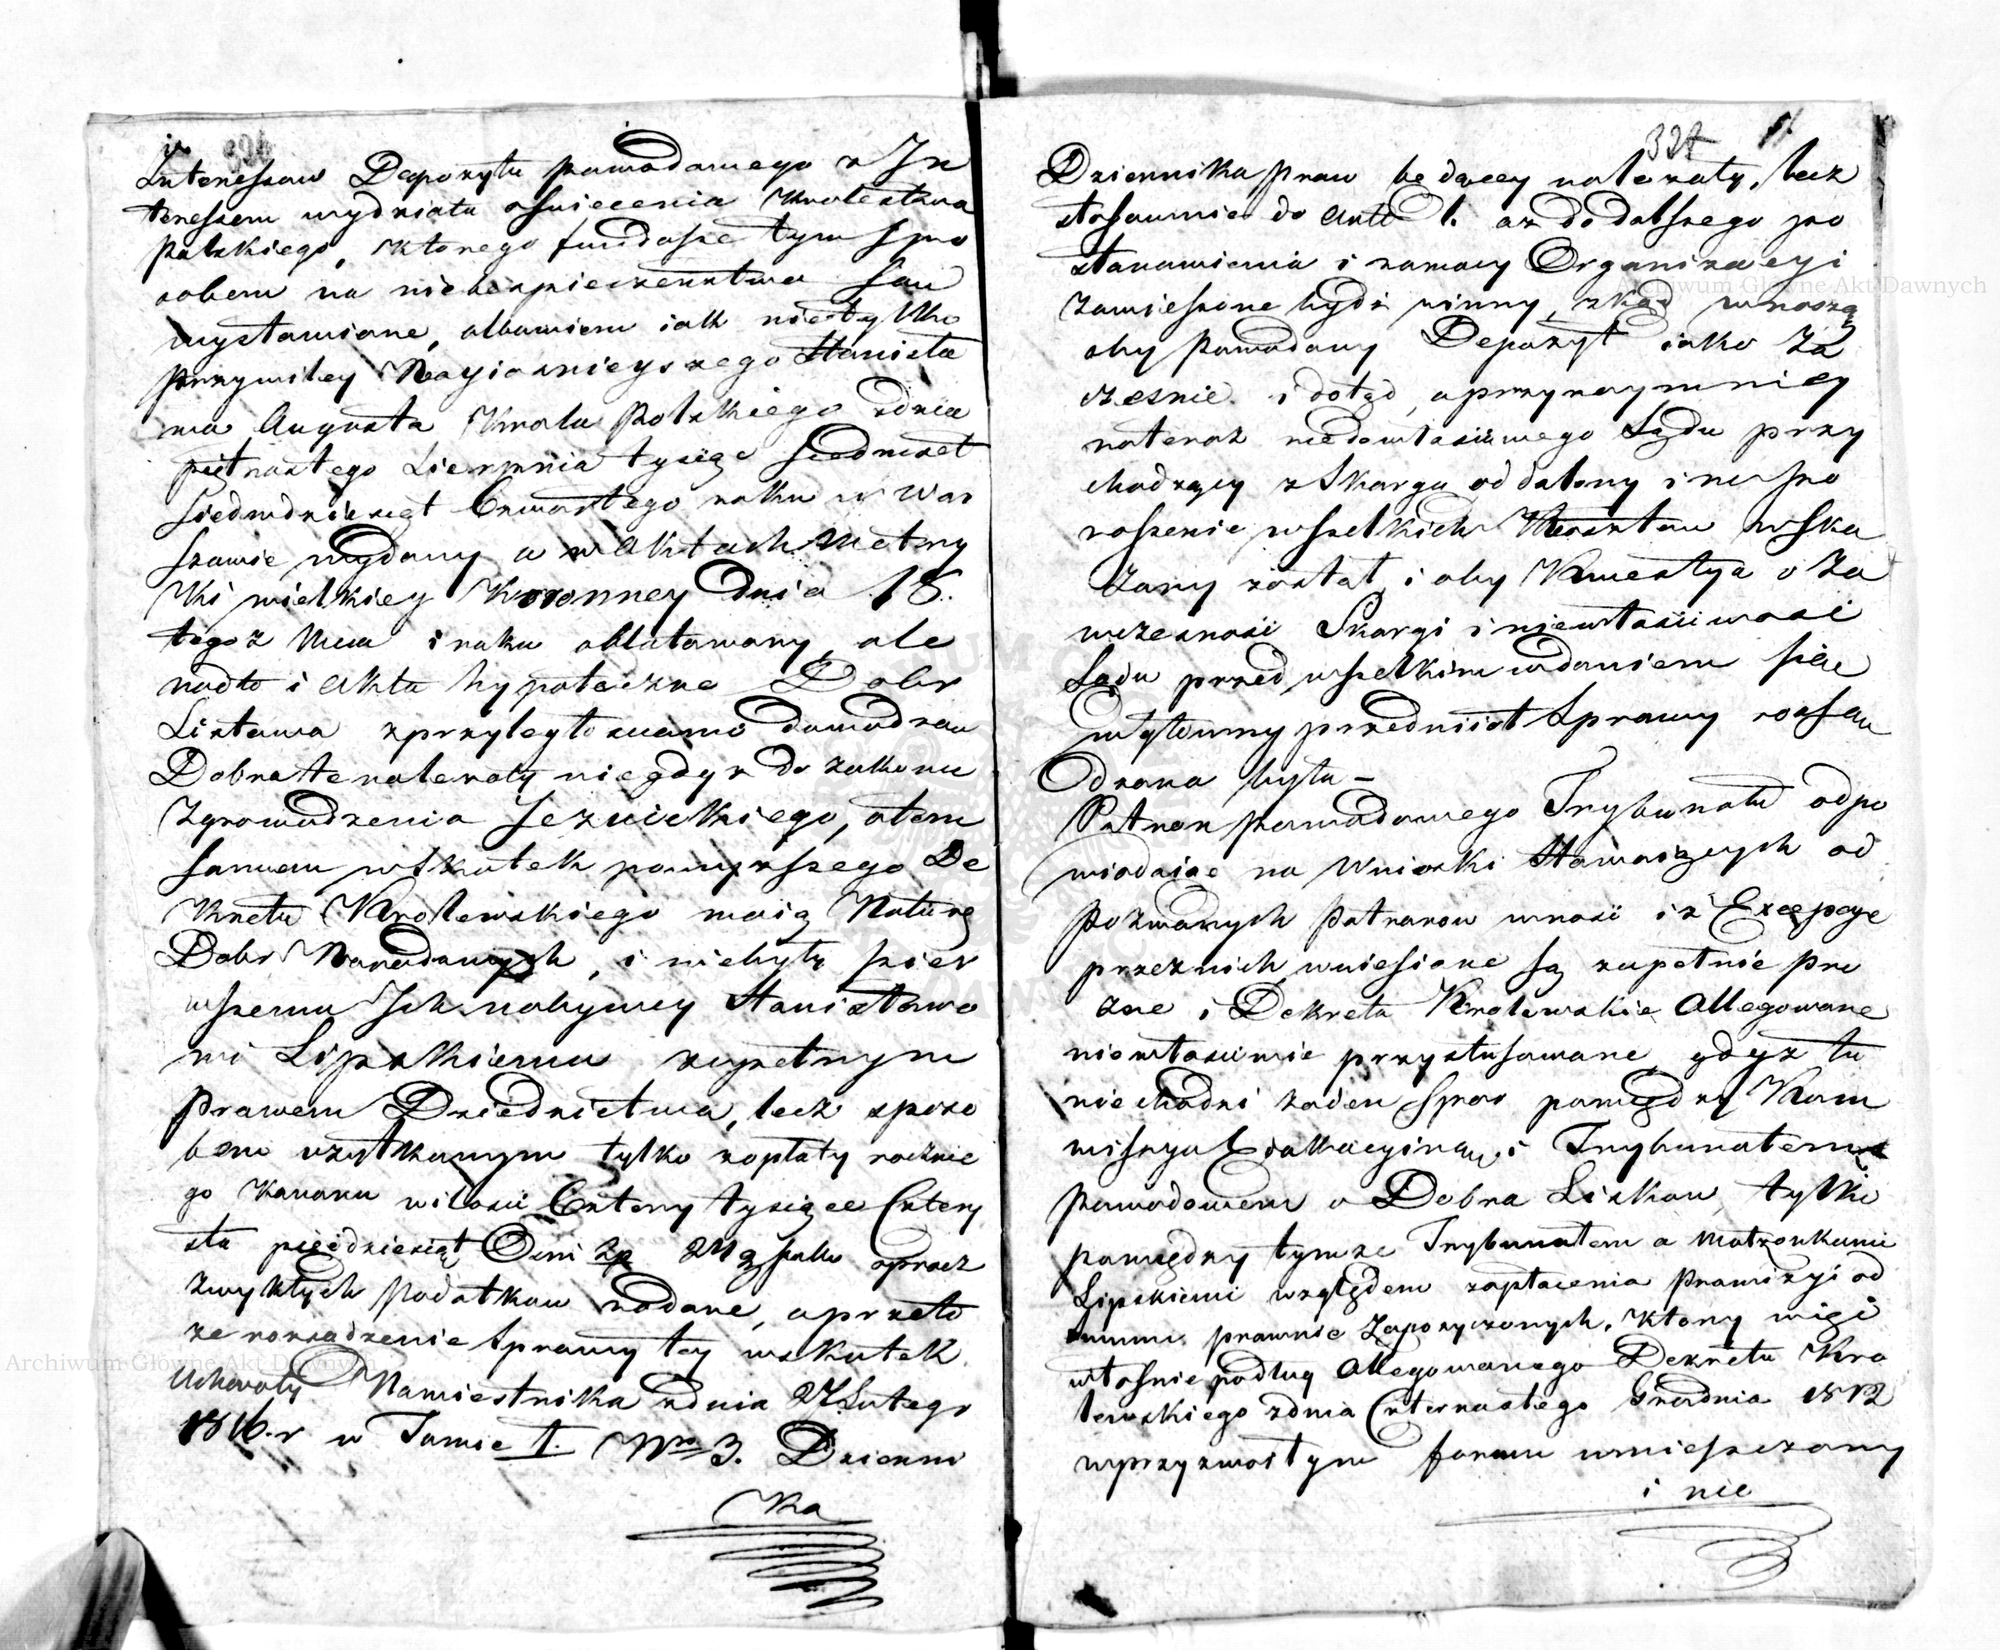 Interessow Depozytu powodowego z In
teressem wydziału oswiecenia Krolestwa
Polskiego, ktorego fundusze tym spo
sobem na niebezpieczenstwo sau
wystawione, albowiem iak nie tylko
przywiley Nayiasnieyszego Stanisła
wa Augusta Krola Polskiego zdnia
piętnastego Sierpnia tysiąc siedmset
siedmdziesiąt Czwartego roku w War
szawie wydany a w Aktach Metry
ki wielkiey Koronney dnia 18.
tegoż Mca i roku oblatowany, ale
nadto i Akta hypoteczne Dobr
Listawa z przyległosciami dowodzau
Dobra te nalezały niegdys do zakonu
Zgromadzenia Jezuickiego, a tem
samem w skutek powyzszego De
kretu Krolewskiego maią Naturę
Dobr Narodowych, i niebyły pier
wszemu Ich nabywcy Stanisławo
wi Lipskiemu zupełnym
prawem Dziedzictwa, lecz sposo
bem uzytkowym tylko zopłaty roczne
go Kanonu wilosci Cztery tysiące Cztery
sta pięcdziesiąt Osm Zp 24 g oprocz
zwykłych Podatkow nadane, a przeto
ze rozsadzenie Sprawy tey w skutek
Uchwały Namiestnika z dnia 27 Lutego
1816. r w Tomie I. Nro 3. Dzienni
ka
327
Dziennika praw będącey nalezały, lecz
stosownie do Artu 1. az do dalszego po
stanowienia i zamocy Organizacyi
zawieszone bydź winny, zkąd wnoszą
aby powodowy Depozyt iako za
wczesnie i dotąd, a przynaymniey
nateraz niedowłasciwego Sądu przy
chodzący z Skargą oddalony i na po
noszenie wszelkich Kosztow wska
zany został, i aby Kwestya o Za
wczesnosci Skargi i niewłasciwosci
Sądu przed wszelkim wdaniem się
w głowny przedmiot Sprawy rossau
Odzona była –
Patron powodowego Trybunału odpo
wiadaiąc na Wnioski Stawaiących od
pozwanych Patronow wnosi iż Excepcye
przeznich wniesione są zupełnie pru
zne i Dekreta Krolewskie Allegowane
niewłasciwie przystosowane, gdyz tu
niechodzi zaden Spor pomiędzy Kom
missyą Likwacyiną i Trybunałem
powodowem o Dobra Liskow, tylko
pomiędzy tymze Trybunałem a Małzonkami
Lipskiemi względem zapłacenia prowizyi od
summ prawnie Zapozyczonych, ktory więc
własnie podług Allegowanego Dekretu Kro
lewskiego zdnia Czternastego Grudnia 1812
wprzyzwoitym forum umieszczony
i nie